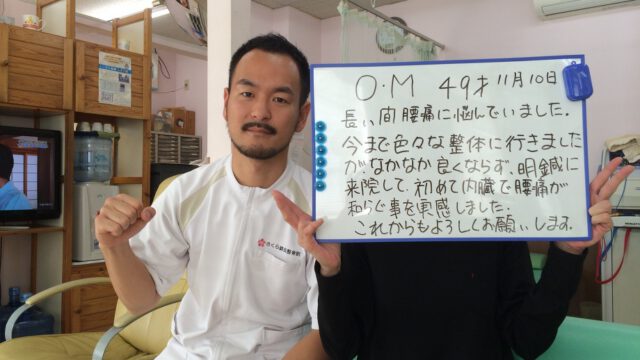 O・M 49才 11月10日
長い間腰痛に悩んでいました。
今まで色々な整体に行きました
がなかなか良くならず、明鍼に
来院して、初めて内臓で腰痛が
和らぐ事を実感しました。
これからもよろしくお願いします。
さくら鍼灸整骨院